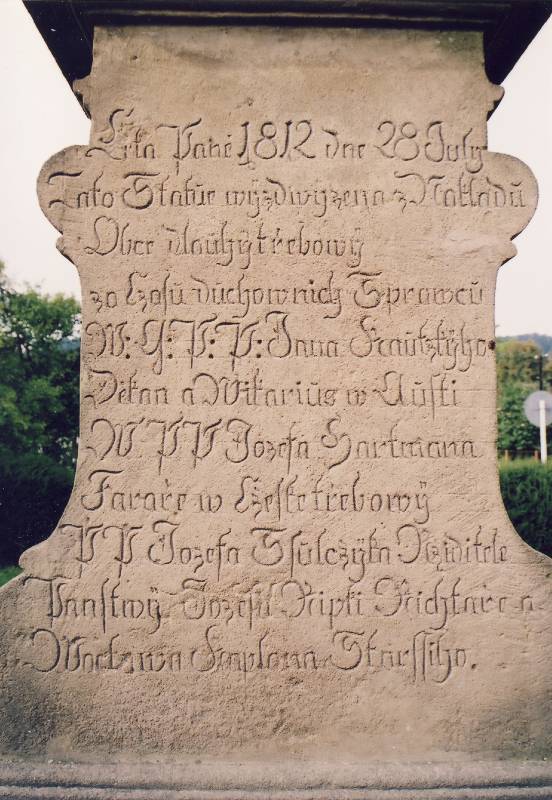 Léta Paně 1812 dne 28 July
Tato Statue wyzdwyzena z Nakladů
Obce dlauhy třebowÿ
za Czasů duchownich Sprawců
W: G: P: P: Jana Krautzkÿho
Dėkan a Wikarius w Austi
W P P Jozefa Hartmana
Farare w Czeske třebowÿ
P P Jozefa Ssulczÿka Rziditele
Panstwÿ Jozefů Ripki Richtare a
Wacława Kaplana Starssiho.